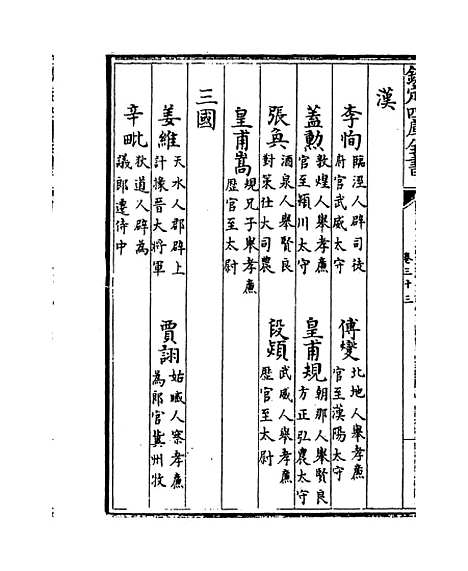 欽定四庫全書
卷三十三
漢
李恂 臨涇人辟司徒府官武威太守
傅燮 北地人舉孝廉官至漢陽太守
蓋勳 敦煌人舉孝廉官至潁川太守
皇甫規 朝那人舉賢良方正弘農太守
張奐 酒泉人舉賢良對策仕大司農
段熲 武威人舉孝廉歴官至太尉
皇甫嵩 規兄子舉孝廉歴官至太尉
三國
姜維 天水人郡辟上計掾晉大將軍
賈詡 姑臧人察孝廉為郎官冀州牧
辛毗 狄道人辟為議郎遷侍中